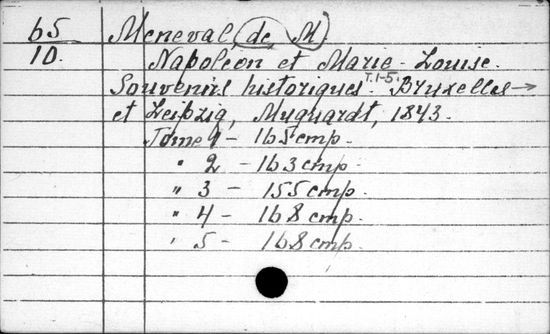 65 Meneval, de, M
10. Napoléon et Marie-Louise.
Souvenirs historiques. T. 1-5. Bruxelles →
et Leipzig, Muquardt, 1843.
Tome 1 - 165 стр.
" 2 - 163 стр.
" 3 - 155 стр.
" 4 - 168 стр.
" 5 - 168 стр.